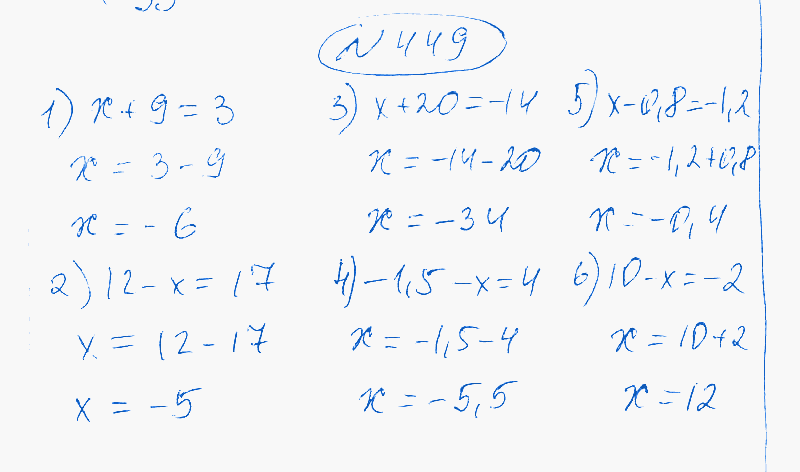 № 449
1) x + 9 = 3
x = 3 - 9
x = - 6
2) 12 - x = 17
x = 12 - 17
x = -5
3) x + 20 = -14
x = -14 - 20
x = -34
4) -1,5 - x = 4
x = -1,5 - 4
x = -5,5
5) x - 0,8 = -1,2
x = -1,2 + 0,8
x = -0,4
6) 10 - x = -2
x = 10 + 2
x = 12